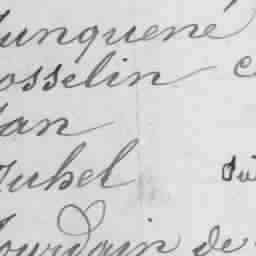 Junquené
osselin
Jan
Juhel
Jourdain de